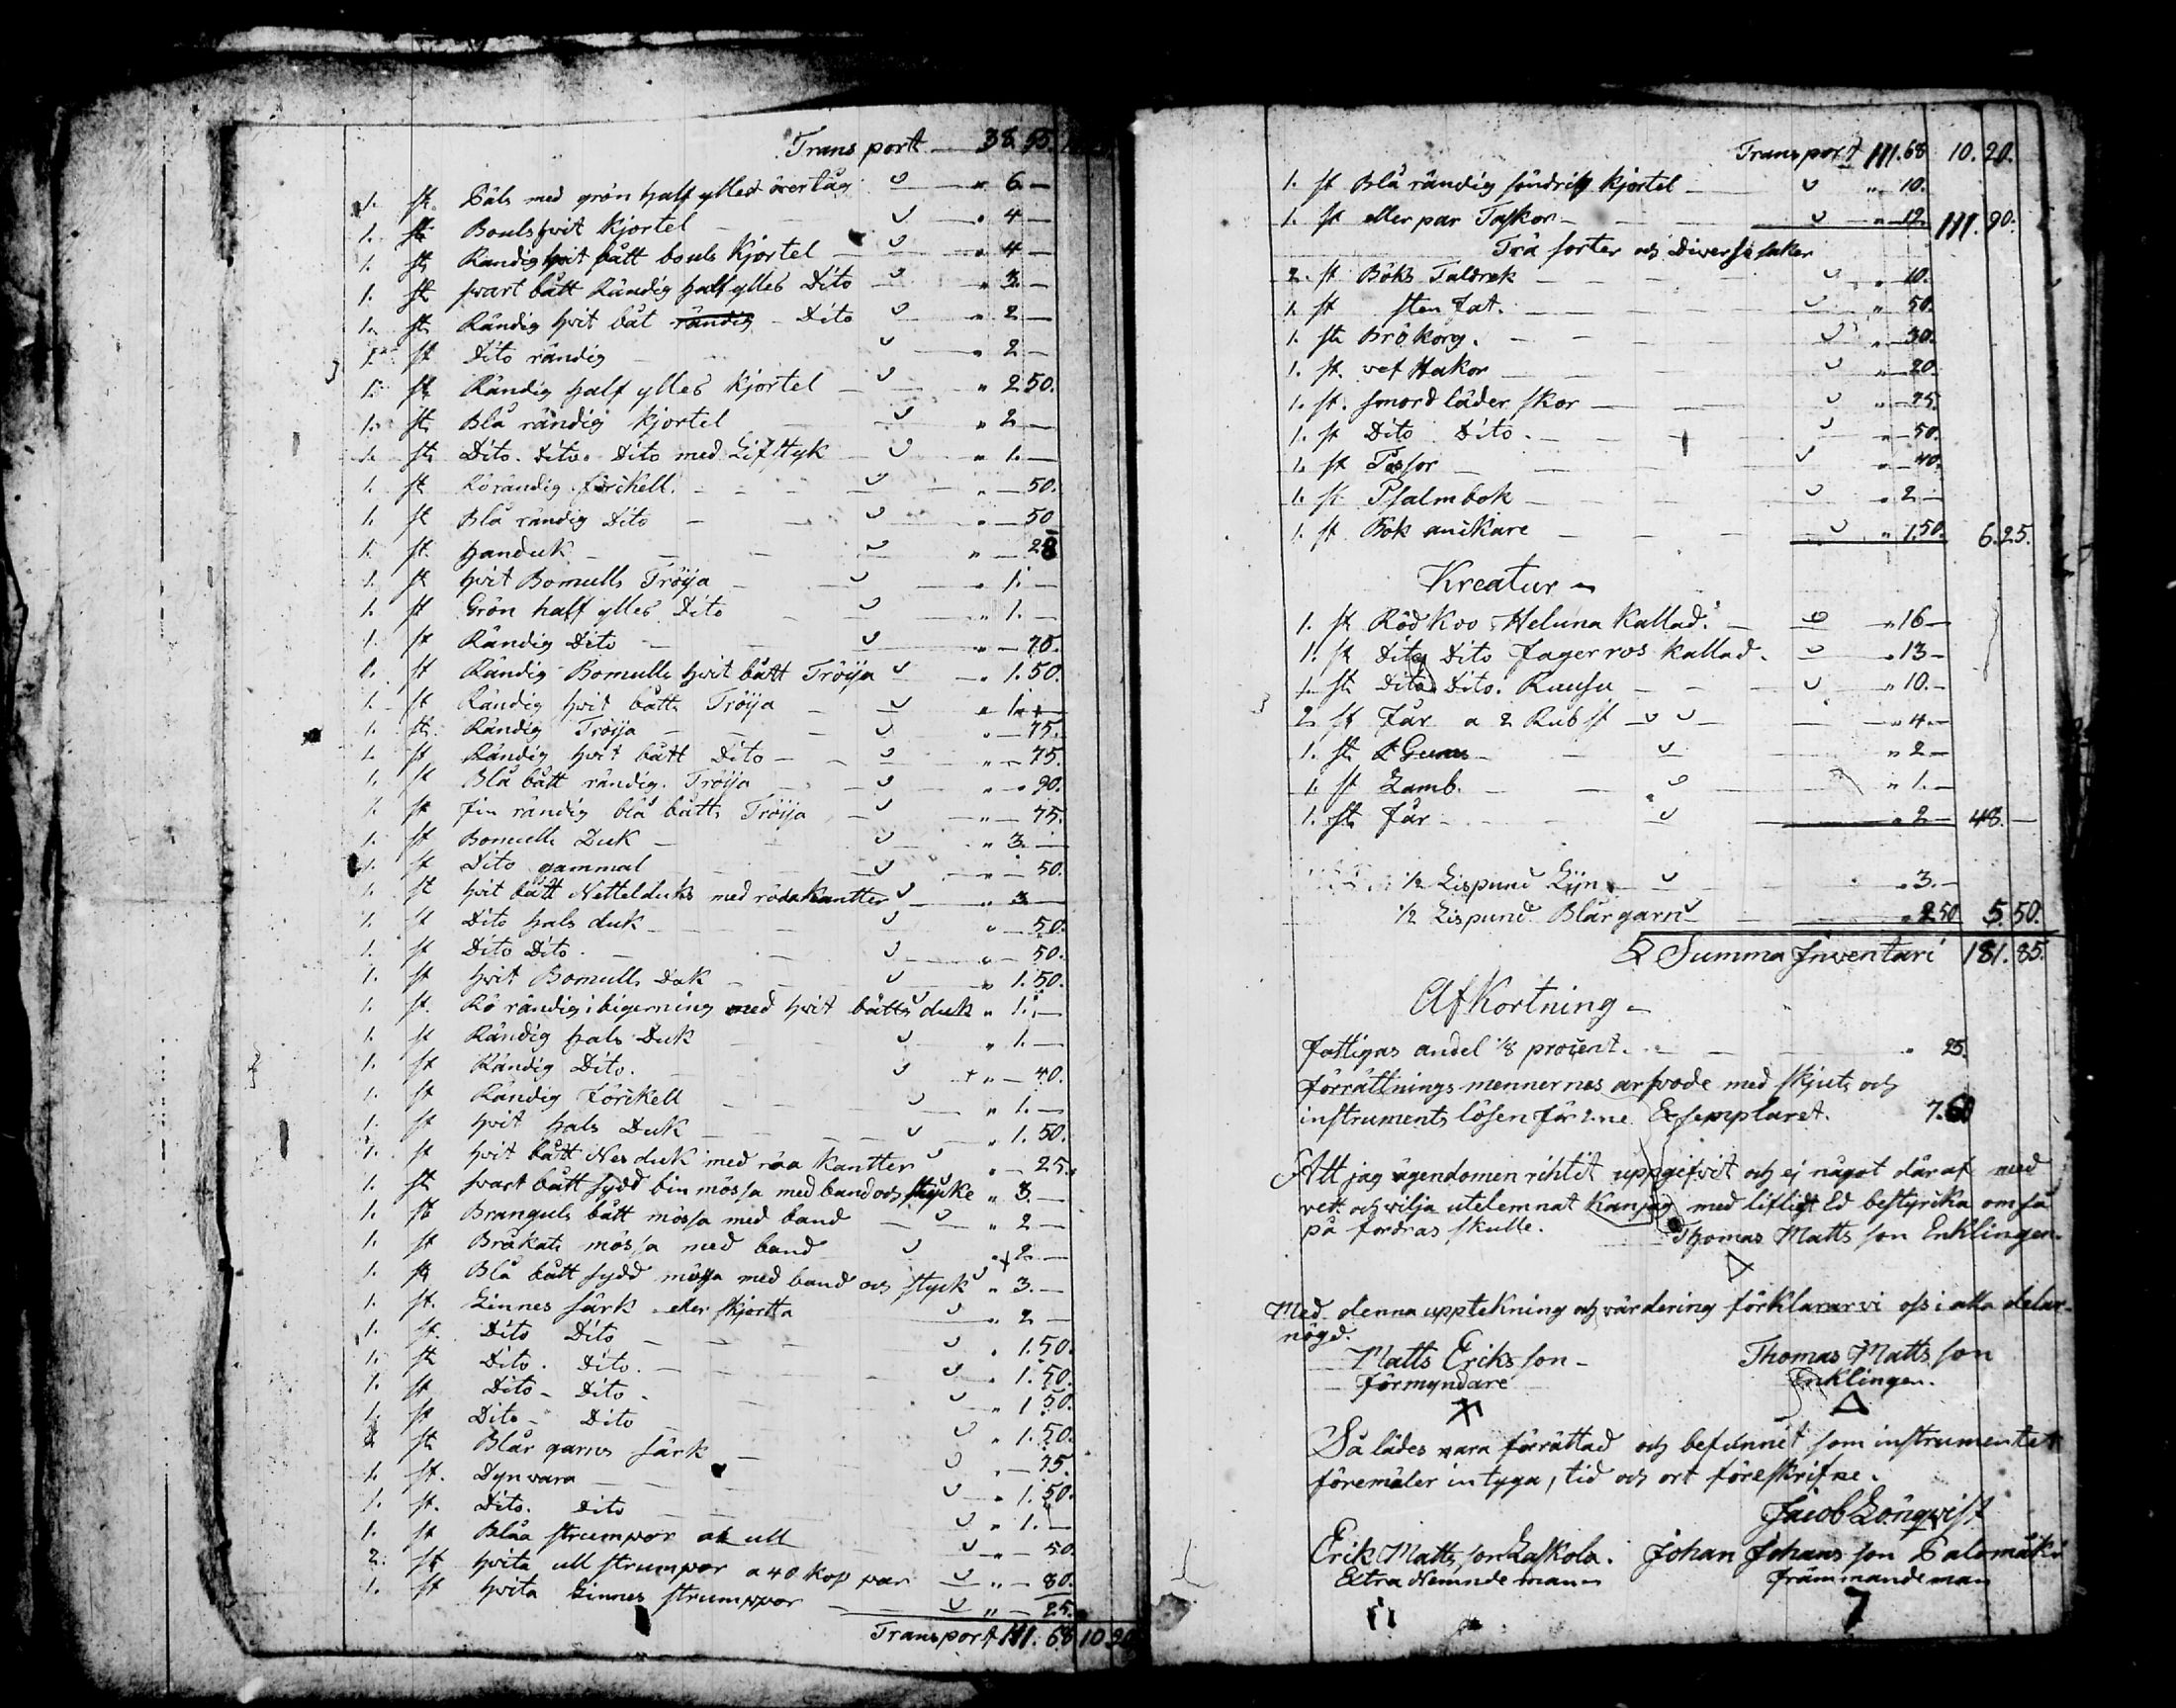 Transport 38. 55.
1. st Päls med grön half ylles övertåg " 6 —
1. st Bouls hvit kjortel " 4 —
1. st Randig hvit bått bouls kjortel " 4 —
1. st svart bått Rändig half ylles Dito " 3. —
1. st Rändig hvit båt rändig Dito " 2 —
1. st Dito rändig " 2 —
1. st Rändig half ylles kjortel " 2 50.
1. st Blå rändig kjortel " 2 —
1. st Dito. Dito. Dito med Lifstyk " 1. —
1. st Rörandig förikell. " — 50.
1. st Blå rändig Dito " — 50
1. st handuk " — 28
1. st hvit Bomulls Tröija " 1. —
1. st Grön half ylles Dito " 1. —
1. st Rändig Dito " — 75.
1. st Rändig Bomulls hvit bått Tröija " 1. 50.
1. st Rändig hvit bått Tröija " 1. —
1. st Rändig Tröija " — 75.
1. st Rändig hvit bått Dito " — 75.
1. st Blå bått rändig. Tröija " — 90.
1. st fin rändig blå bått Tröija " — 75.
1. st Bomulls Duk " 3. —
1. st Dito gammal " — 50.
1. st hvit bått Nettelduks med röda kantter " 3 —
1. st Dito hals duk " — 50.
1. st Dito Dito " — 50.
1. st hvit Bomulls Duk " 1. 50.
1. st. Rö rändig i bigerning med hvit bått duk " 1. —
1. st Rändig hals Duk " 1. —
1. st Rändig Dito. " — 40.
1. st Rändig Förikell " 1. —
1. st hvit hals Duk " 1. 50.
1. st hvit bått Nesduk med röa kantter " — 25.
1. st svart bått sydd bin mössa med band och stycke " 3. —
1. st Branguls bått mössa med band " 2 —
1. st Bråkats mössa med band " 2 —
1. st Blå bått sydd mössa med band och styck " 3. —
1. st. Linnes särk eller skjortta " 2 —
1. st. Dito Dito " 1. 50.
1. st Dito. Dito. " 1. 50.
1. st Dito - Dito - " 1 50.
1. st Dito - Dito " 1. 50.
1. st Blår garns särk " — 75.
1. st. Dynvara " 1. 50.
1. st. Dito. Dito " 1. —
1. st Blåa strumpor ak ull " — 50
2. st hvita ull strumpor a 40 kop par " — 80.
1. st hvita Linnes strumpor " — 25.
Transport 111. 68 10 20
Transport 111. 68 10. 20.
1. st Blå rändig söndrig kjortel " 10.
1. st eller par Taskor " — 12 111. 90.
Trä sorter och Diverse saker
2. st Böks Taldrek " 10.
1. st sten fat. " 50.
1. st Brökorg. " — 30.
1. st. vef Hakor " — 20.
1. st. smord läder skor " — 75.
1. st Dito Dito. " — 50.
1. st Tössor " — 40.
1. st Psalmbok " 2. —
1. st Bok anikare " 1.50. 6. 25.
Kreatur
1. st Röd Koo Heluna kallad. " 16 —
1. st Dito Dito Fagerros kallad. " 13 —
1. st Dito. Dito. Ruusu " 10. —
2 st Får a 2 Rub st " 4 —
1. st " 2 —
1. st Lamb. " 1. —
1. st Får " 2 — 48. —
1/2 Lispund Lijn " 3. —
1/2 Lispund Blårgarn " 2 50 5. 50.
Summa Inventari 181. 85.
Afkortning
fattigas andel 1/8 procent. " 25.
förrättnings mennernes arfvode med skjuts och
instruments lösen för 2.ne Exsemplaret. 7. 60
Att jag egendomen riktit uppgifvit och ej något däraf med
vett och vilja utelemnat kan jag med lifligt Ed bestyrika om så
på fordras skulle. Thomas Matts son Enklingen.
Med denna upptekning och värdering förklarar vi oss i alla delar
nögd.
Matts Eriks son Thomas Matts son
Förmyndare Enklingen.
Så lädes vara förrättad och befunnit som instrumentet
föremäler intyga, tid och ort föreskrifne.
Jacob Lönqvist
Erik Matts son Laskola. Johan Johans son Palomäki
Extra Nemndeman främmandeman